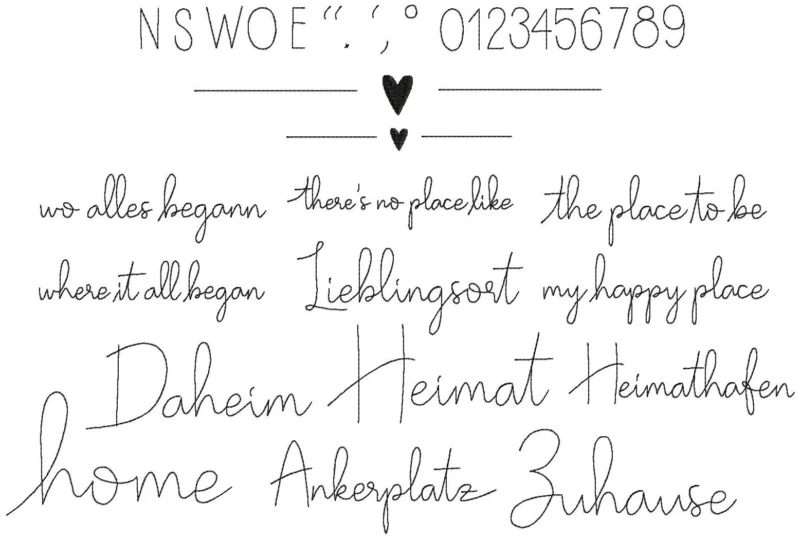 N S W O E “ . ‘ , ° 0123456789
wo alles begann there's no place like the place to be
where it all began Lieblingsort my happy place
Daheim Heimat Heimathafen
home Ankerplatz Zuhause